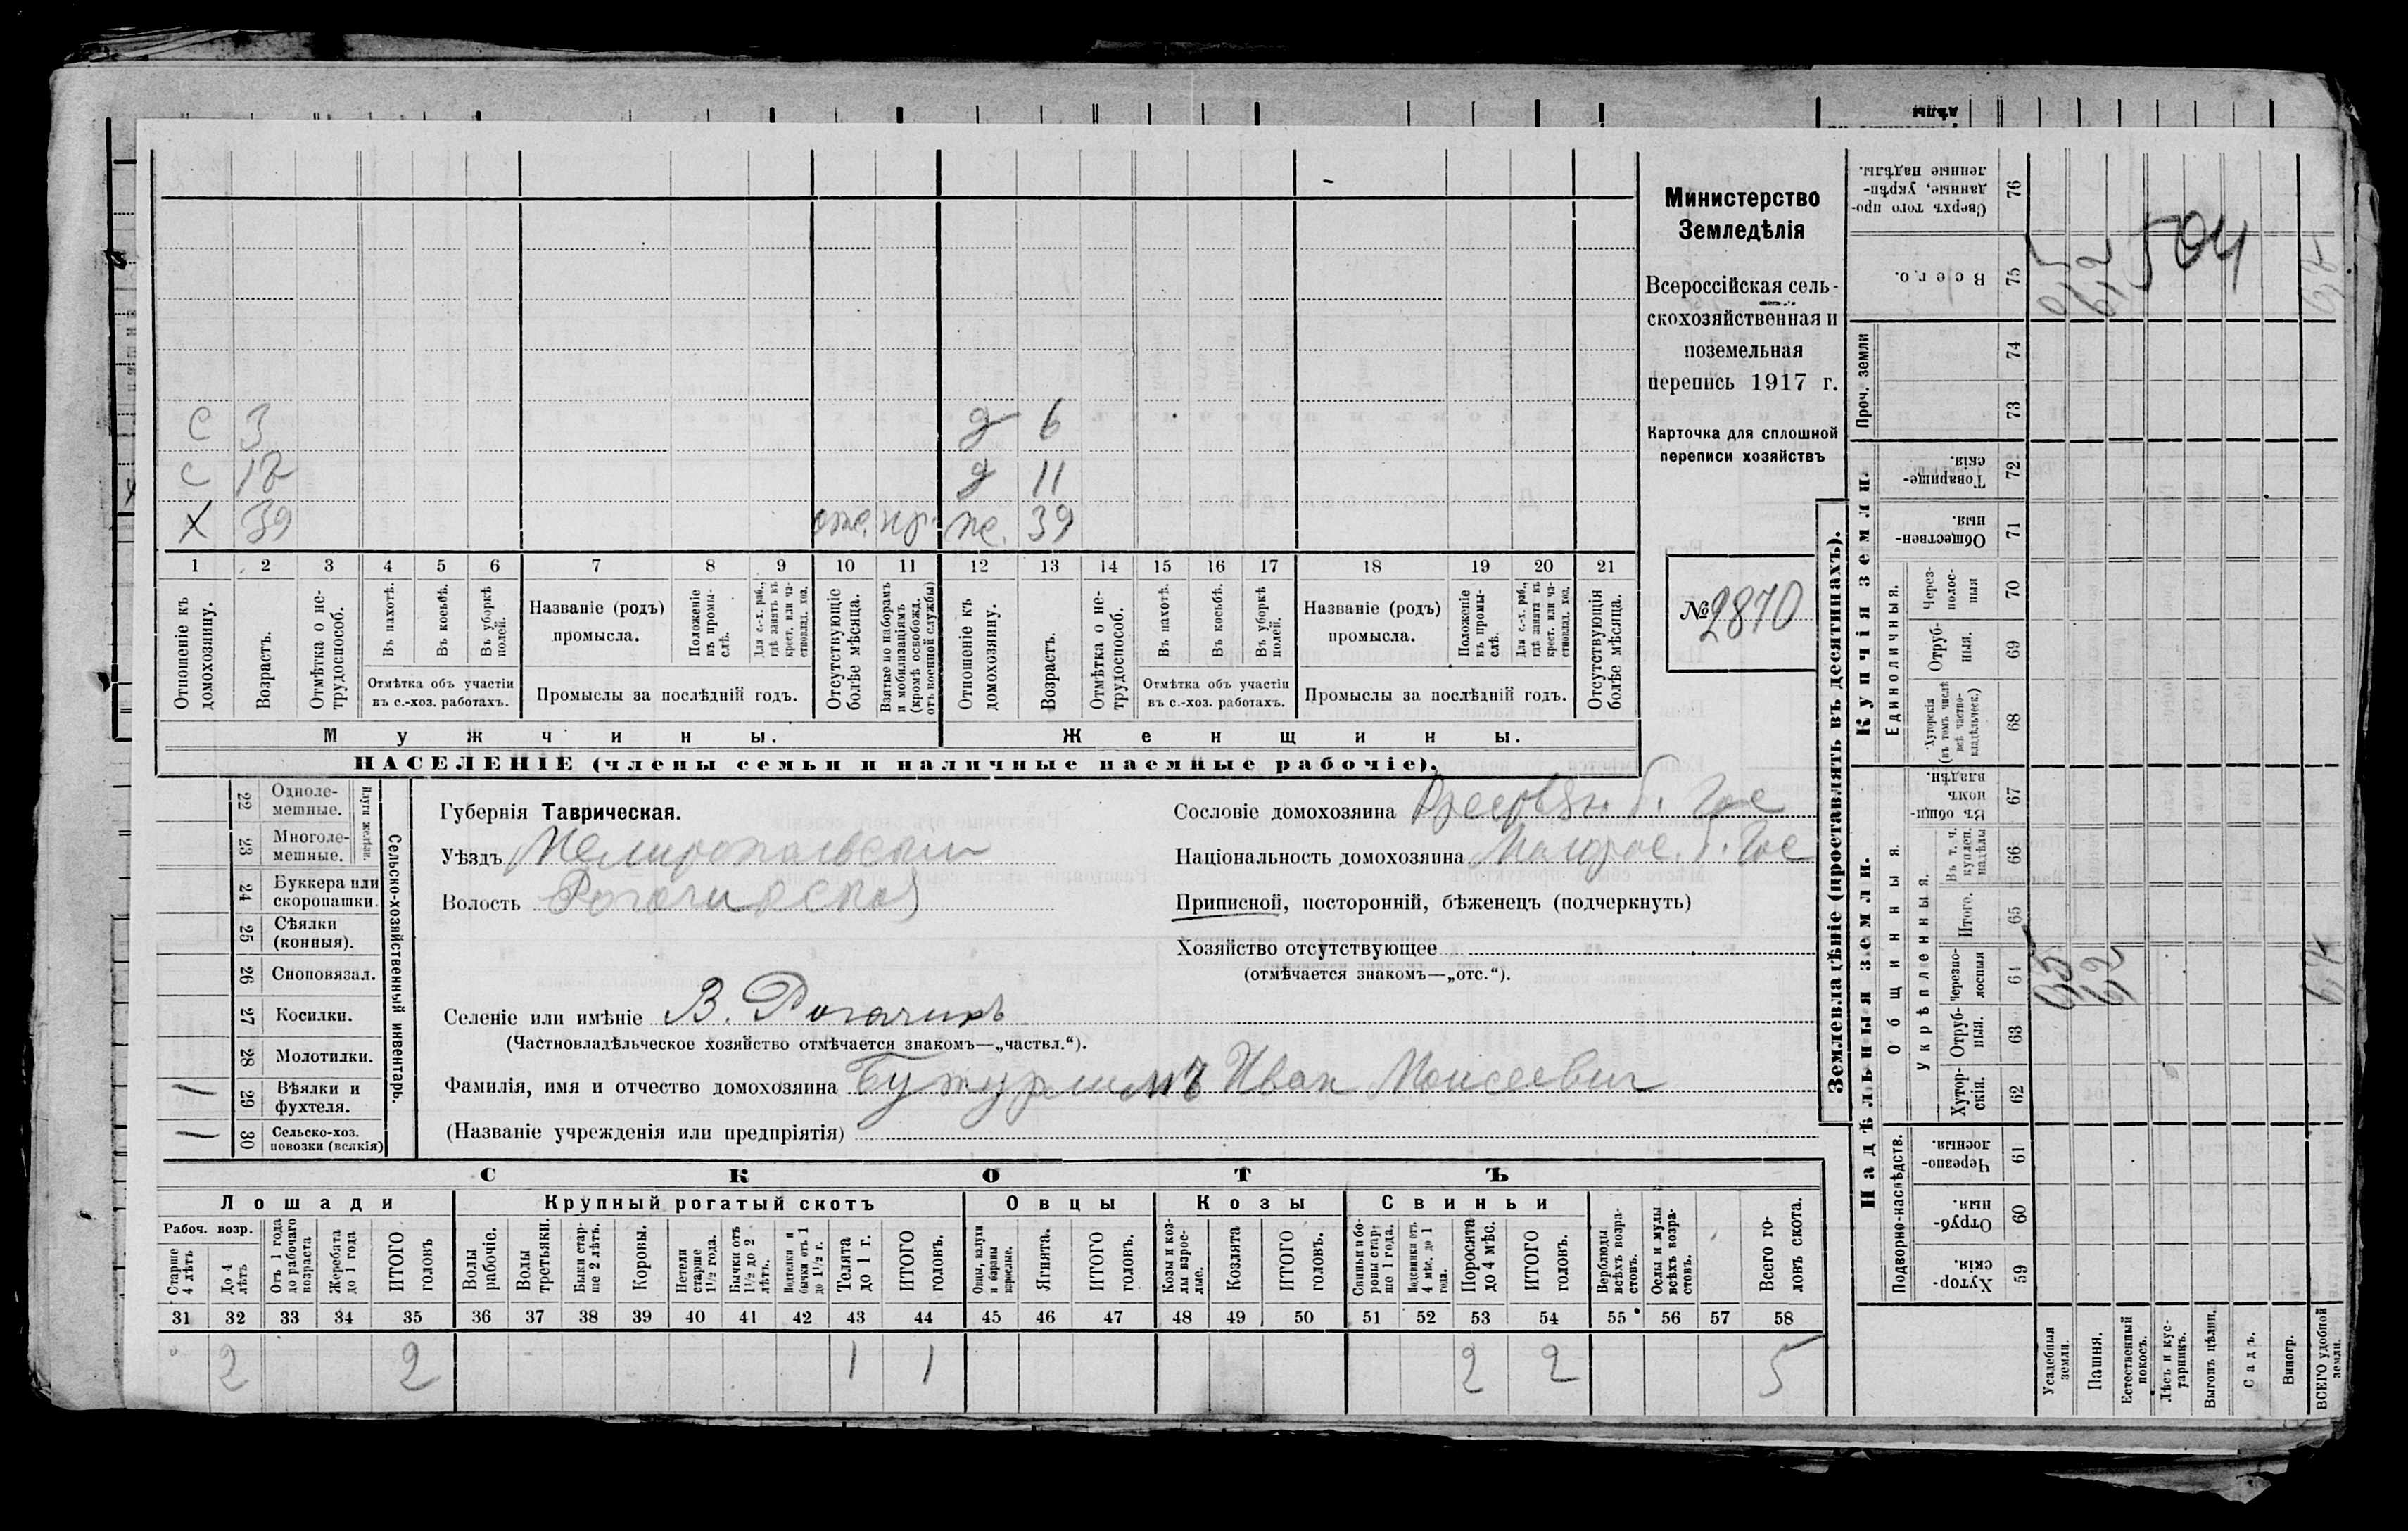 С 3 д 6
С 12 д 11
Х 39 отс. нр. ж. 39
1 2 3 4 5 6 7 8 9 10 11 12 13 14 15 16 17 18 19 20 21
Отношеніе къ домохозяину.
Возрастъ.
Отмѣтка о нетрудоспособ.
Въ пахотѣ.
Въ косьбѣ.
Въ уборкѣ полей.
Отмѣтка объ участіи
въ с.-хоз. работахъ.
Названіе (родъ)
промысла.
Положеніе въ промыслѣ.
Для с.-х. раб., гдѣ занятъ въ крест. или частновлад. хоз.
Промыслы за послѣдній годъ.
Отсутствующіе болѣе мѣсяца.
Взятые по наборамъ и мобилизаціямъ (кромѣ освобожд. отъ военной службы)
Отношеніе къ домохозяину.
Возрастъ.
Отмѣтка о нетрудоспособ.
Въ пахотѣ.
Въ косьбѣ.
Въ уборкѣ полей.
Отмѣтка объ участіи
въ с.-хоз. работахъ.
Названіе (родъ)
промысла.
Положеніе въ промыслѣ.
Для с.-х. раб., гдѣ занята въ крест. или частновлад. хоз.
Промыслы за послѣдній годъ.
Отсутствующія болѣе мѣсяца.
Мужчины. Женщины.
НАСЕЛЕНІЕ (члены семьи и наличные наемные рабочіе).
Министерство
Земледѣлія
Всероссійская сель-
скохозяйственная и
поземельная
перепись 1917 г.
Карточка для сплошной
переписи хозяйствъ
№ 2870
Сельско-хозяйственный инвентарь.
Плуги желѣзн.
22 Одноле-
мешные.
23 Многоле-
мешные.
24 Буккера или
скоропашки.
25 Сѣялки
(конныя).
26 Сноповязал.
27 Косилки.
28 Молотилки.
1 29 Вѣялки и
фухтеля.
1 30 Сельско-хоз.
повозки (всякія)
Губернія Таврическая.
Уѣздъ Мелитопольскій
Волость Рогачикская
Селеніе или имѣніе В. Рогачикъ
(Частновладѣльческое хозяйство отмѣчается знакомъ—„частвл.“).
Фамилія, имя и отчество домохозяина Бутурлимъ Иван Моисеевич
(Названіе учрежденія или предпріятія)
Сословіе домохозяина
Національность домохозяина Малорос.
Приписной, посторонній, бѣженецъ (подчеркнуть)
Хозяйство отсутствующее
(отмѣчается знакомъ—„отс.“).
СКОТЪ
Лошади Крупный рогатый скотъ Овцы Козы Свиньи
Рабоч. возр.
Старше 4 лѣтъ
До 4 лѣтъ
Отъ 1 года до рабочаго возраста
Жеребята до 1 года
ИТОГО головъ
Волы рабочіе.
Волы третьяки.
Быки старше 2 лѣтъ.
Коровы.
Нетели старше 1½ года.
Бычки отъ 1½ до 2 лѣтъ.
Подтелки и бычки отъ 1 до 1½ г.
Телята до 1 г.
ИТОГО головъ.
Овцы, валухи и бараны взрослые.
Ягнята.
ИТОГО головъ.
Козы и козлы взрослые.
Козлята
ИТОГО головъ.
Свиньи и боровы старше 1 года.
Подсвинки отъ 4 мѣс. до 1 года.
Поросята до 4 мѣс.
ИТОГО головъ.
Верблюды всѣхъ возрастовъ.
Ослы и мулы всѣхъ возрастовъ.
Всего головъ скота.
31 32 33 34 35 36 37 38 39 40 41 42 43 44 45 46 47 48 49 50 51 52 53 54 55 56 57 58
2 2 1 1 2 2 5
Землевладѣніе (проставлять въ десятинахъ).
Купчія земли.
Надѣльныя земли.
Сверхъ того проданные, укрѣпленные надѣлы. 76
Всего. 75 0,5 6,2 504
Проч. земли 74
73
Товарищескія. 72
Общественныя. 71
Единоличныя.
Черезполосныя 70
Отрубныя. 69
Хуторскія (въ томъ числѣ всѣ частновладѣльческ.) 68
Въ общинномъ владѣн. 67
Общинныя.
Укрѣпленныя.
Въ т. ч. куплен. надѣлы 66
Итого. 65
Черезполосныя 64 0,5 6,2
Отрубныя. 63
Хуторскія. 62
Подворно-наслѣдств.
Черезполосныя. 61
Отрубныя. 60
Хуторскія. 59
Усадебныя земли.
Пашня.
Естественный покосъ.
Лѣсъ и кустарникъ.
Выгонъ цѣлин.
Садъ.
Виногр.
ВСЕГО удобной земли.